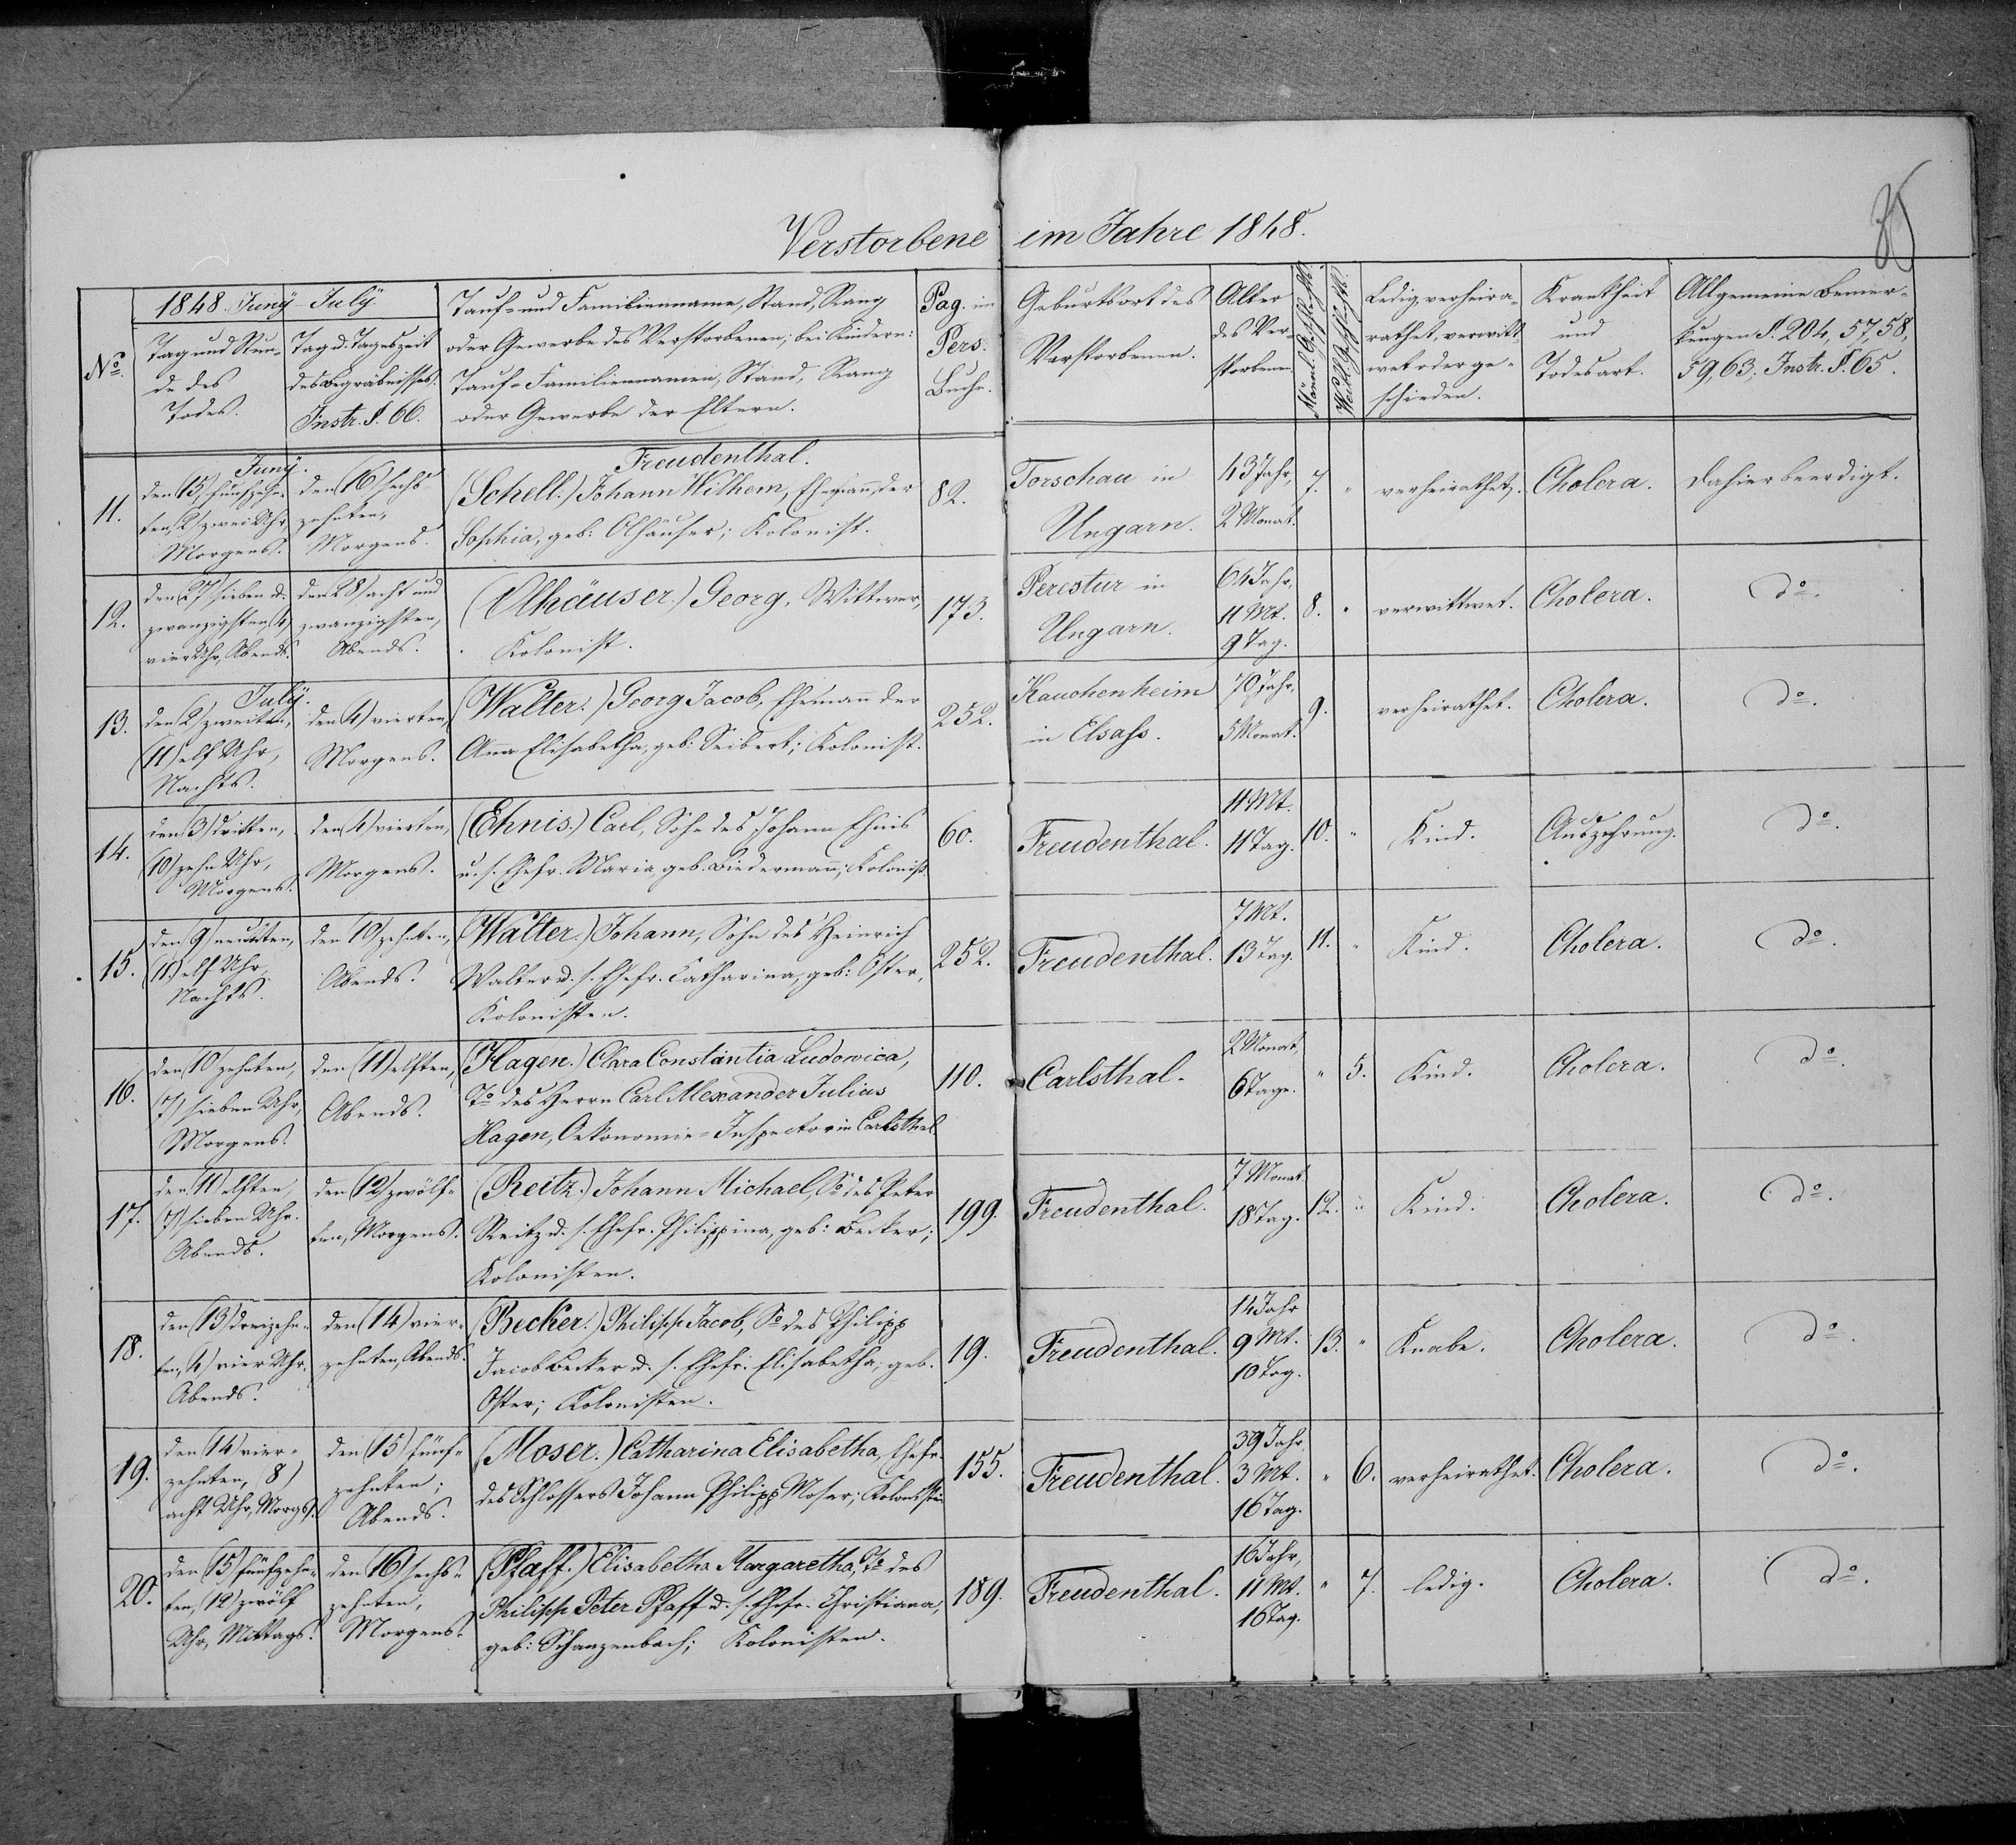 Verstorbene im Jahre 1848.
35
No.
1848. Juny - July.
Tag und Stun-
de des
Todes.
Tag u. Tageszeit
des Begräbnisses.
Instr. §. 66.
Tauf- und Familienname, Stand, Rang
oder Gewerbe des Verstorbenen; bei Kindern:
Tauf- Familiennamen, Stand, Rang
oder Gewerbe der Eltern.
Pag. im
Pers.
Buche.
Geburtsort des
Verstorbenen.
Alter
des Ver-
storbenen.
Männl. Geschlecht.
Weibl. Geschlecht.
Ledig, verheira-
rathet, verwitt-
wet oder ge-
schieden.
Krankheit
und
Todesart.
Allgemeine Bemer-
kungen §. 204, 57, 58,
59, 63; Instr. §. 65.
Freudenthal.
Juny.
11.
den (15) fünfzehn-
ten, (2) zwei Uhr,
Morgens.
den (16) sechs-
zehnten,
Morgens.
(Schell.) Johann Wilhem, Ehemann der
Sophia, geb: Olhäuser; Kolonist.
82.
Torschau in
Ungarn.
43 Jahr,
2 Monat.
7. "
verheirathet.
Cholera.
Dahier beerdigt.
12.
den (27) sieben u.
zwanzigsten, (4)
vier Uhr, Abends.
den (28) acht und
zwanzigsten,
Abends.
(Olhäuser.) Georg, Wittwer,
Kolonist.
173.
Perestur in
Ungarn.
64 Jahr,
11 Mt.
9 Tag.
8. "
verwittwet.
Cholera.
do.
July.
13.
den (2) zweiten,
(11) elf Uhr,
Nachts.
den (4) vierten,
Morgens.
(Walter.) Georg Jacob, Ehemann der
Anna Elisabetha, geb: Seibert; Kolonist.
252.
Kauchenheim
in Elsass.
70 Jahr,
5 Monat.
9.
verheirathet.
Cholera.
do.
14.
den (3) dritten,
(10) zehn Uhr,
Morgens.
den (4) vierten,
Morgens.
(Ehnis.) Carl, Sohn des Johann Ehnis
u. s. Ehefr. Maria, geb. Biedermann; Kolonist.
60.
Freudenthal.
11 Mt.
11 Tag.
10. "
Kind.
Auszehrung.
do.
15.
den (9) neunten,
(11) elf Uhr,
Nachts.
den (10) zehnten,
Abends.
(Walter.) Johann, Sohn des Heinrich
Walter u. s. Ehefr. Catharina, geb: Oster,
Kolonisten.
252.
Freudenthal.
7 Mt.
13 Tag.
11. "
Kind.
Cholera.
do.
16.
den (10) zehnten,
(7) sieben Uhr,
Morgens.
den (11) elften,
Abends.
(Hagen.) Clara Constantia Ludowica,
To. des Herrn Carl Alexander Julius
Hagen, Oekonomie-Inspector in Carlsthal.
110.
Carlsthal.
2 Monat,
6 Tage.
" 5.
Kind.
Cholera.
do.
17.
den (11) elften,
(7) sieben Uhr.
Abends.
den (12) zwölf-
ten, Morgens.
(Reitz.) Johann Michael, So. des Peter
Reitz u. s. Ehefr. Philippina, geb: Becker;
Kolonisten.
199.
Freudenthal.
7 Monat.
18 Tag.
12. "
Kind.
Cholera.
do.
18.
den (13) dreizehn-
ten, (4) vier Uhr,
Abends.
den (14) vier-
zehnten, Abends.
(Becker.) Philipp Jacob, So. des Philipp
Jacob Becker u. s. Ehefr. Elisabetha, geb.
Oster; Kolonisten.
19.
Freudenthal.
14 Jahr
9 Mt.
10 Tag.
13. "
Knabe.
Cholera.
do.
19.
den (14) vier-
zehnten, (8)
acht Uhr, Morgs.
den (15) fünf-
zehnten;
Abends.
(Moser.) Catharina Elisabetha, Ehefr.
des Schlossers Johann Philipp Moser; Kolonistin
155.
Freudenthal.
39 Jahr
3 Mt.
16 Tag.
" 6.
verheirathet.
Cholera.
do.
20.
den (15) fünfzehn-
ten, (12) zwölf
Uhr, Mittags.
den (16) sechs-
zehnten,
Morgens.
(Pfaff.) Elisabetha Margaretha, To. des
Philipp Peter Pfaff u. s. Ehefr. Christiana,
geb: Schanzenbach; Kolonisten.
189.
Freudenthal.
16 Jahr,
11 Mt.
16 Tag.
" 7.
ledig.
Cholera.
do.